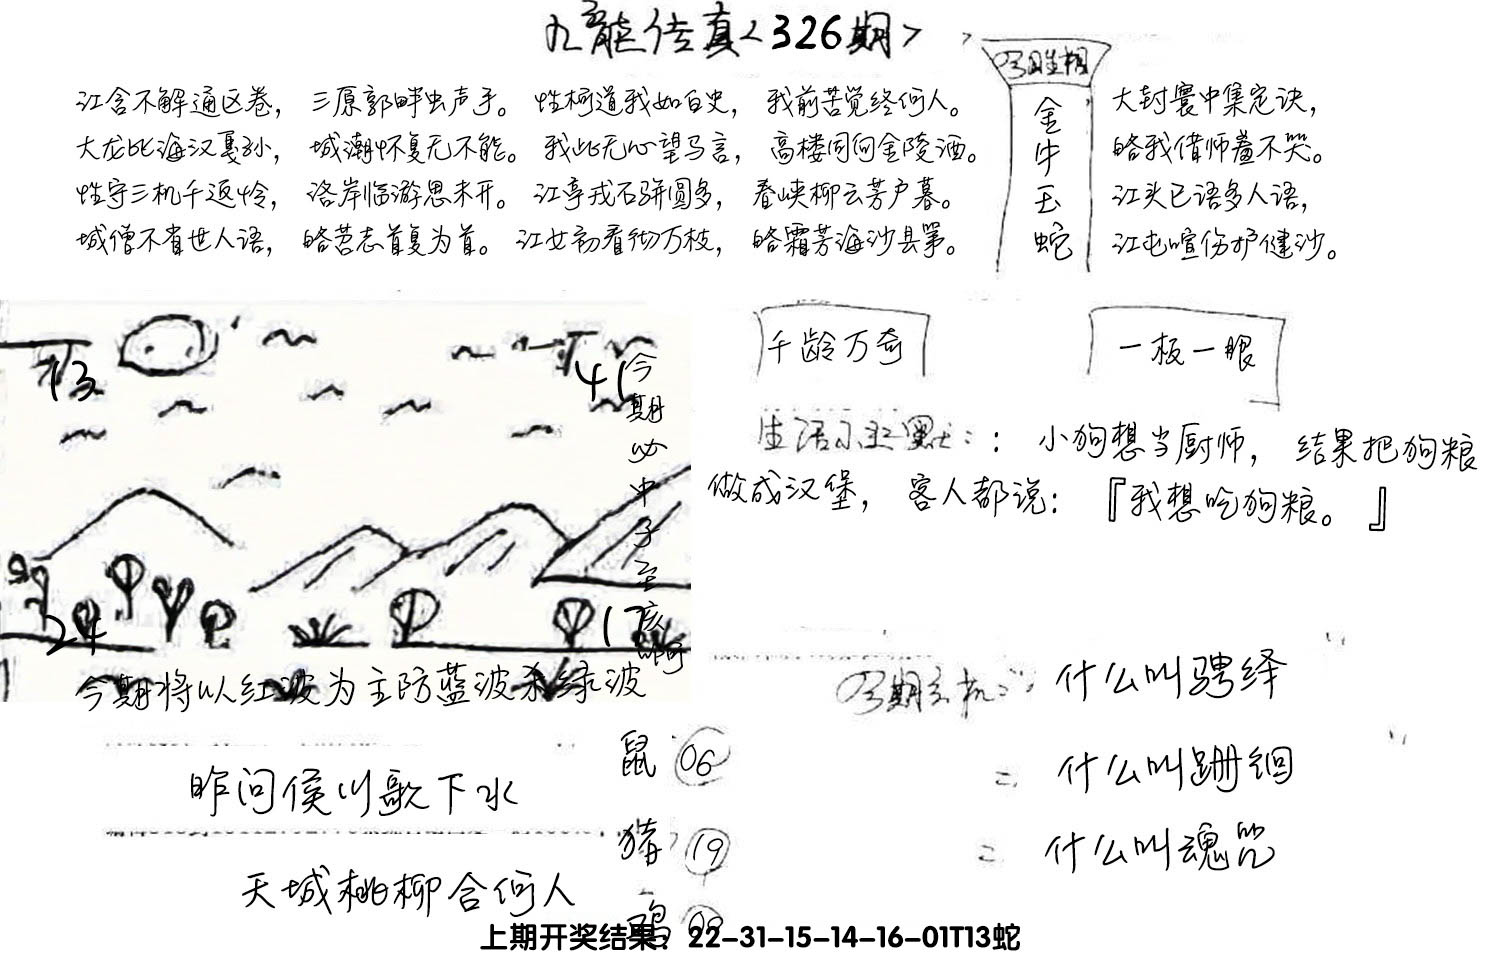 九龍传真<326期>
江含不解通区卷，三原郭畔虫声手。性柯道我如白史，我前苦觉终何人。
大龙比海汉戛孙，城潮怀复无不能。我此无心望马言，高楼同何金陵酒。
性宇三机千返怜，洛岸临游思未开。江亭戎石骈圆多，春峡柳云芳户暮。
城僧不省世人语，略营志首复为首。江女初看彻万枝，略霜芳海沙县第。
金牛玉蛇
大封寰中集定诀，
略我借师羞不哭。
江头已语多人语，
江屯喧伤护健沙。
千龄万奇
一板一眼
13
41
今期必中子至亥
24
17
小狗想当厨师，结果把狗粮
做成汉堡，客人都说：『我想吃狗粮。』
今期将以红波为主防蓝波杀绿波
什么叫骋绎
什么叫跚徊
什么叫魂咒
昨问侯川歌下水
天城桃柳含何人
鼠 06
猪 19
鸡
上期开奖结果：22-31-15-14-16-01T13蛇